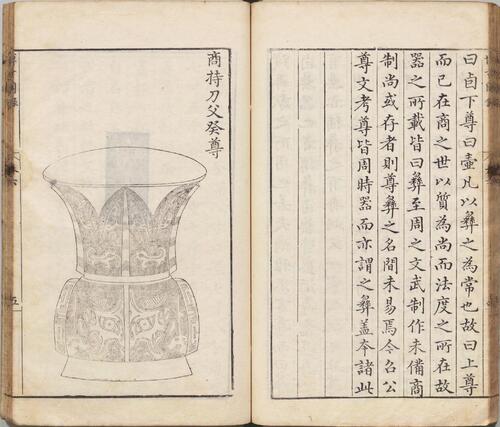 曰卣下尊曰壺凡以彝之為常也故曰上尊
而已在商之世以質為尚而法度之所在故
器之所載皆曰彝至周之文武制作未備商
制尚或存者則尊彝之名間未易焉令召公
尊文考尊皆周時器而亦謂之彝蓋本諸此
商持刀父癸尊